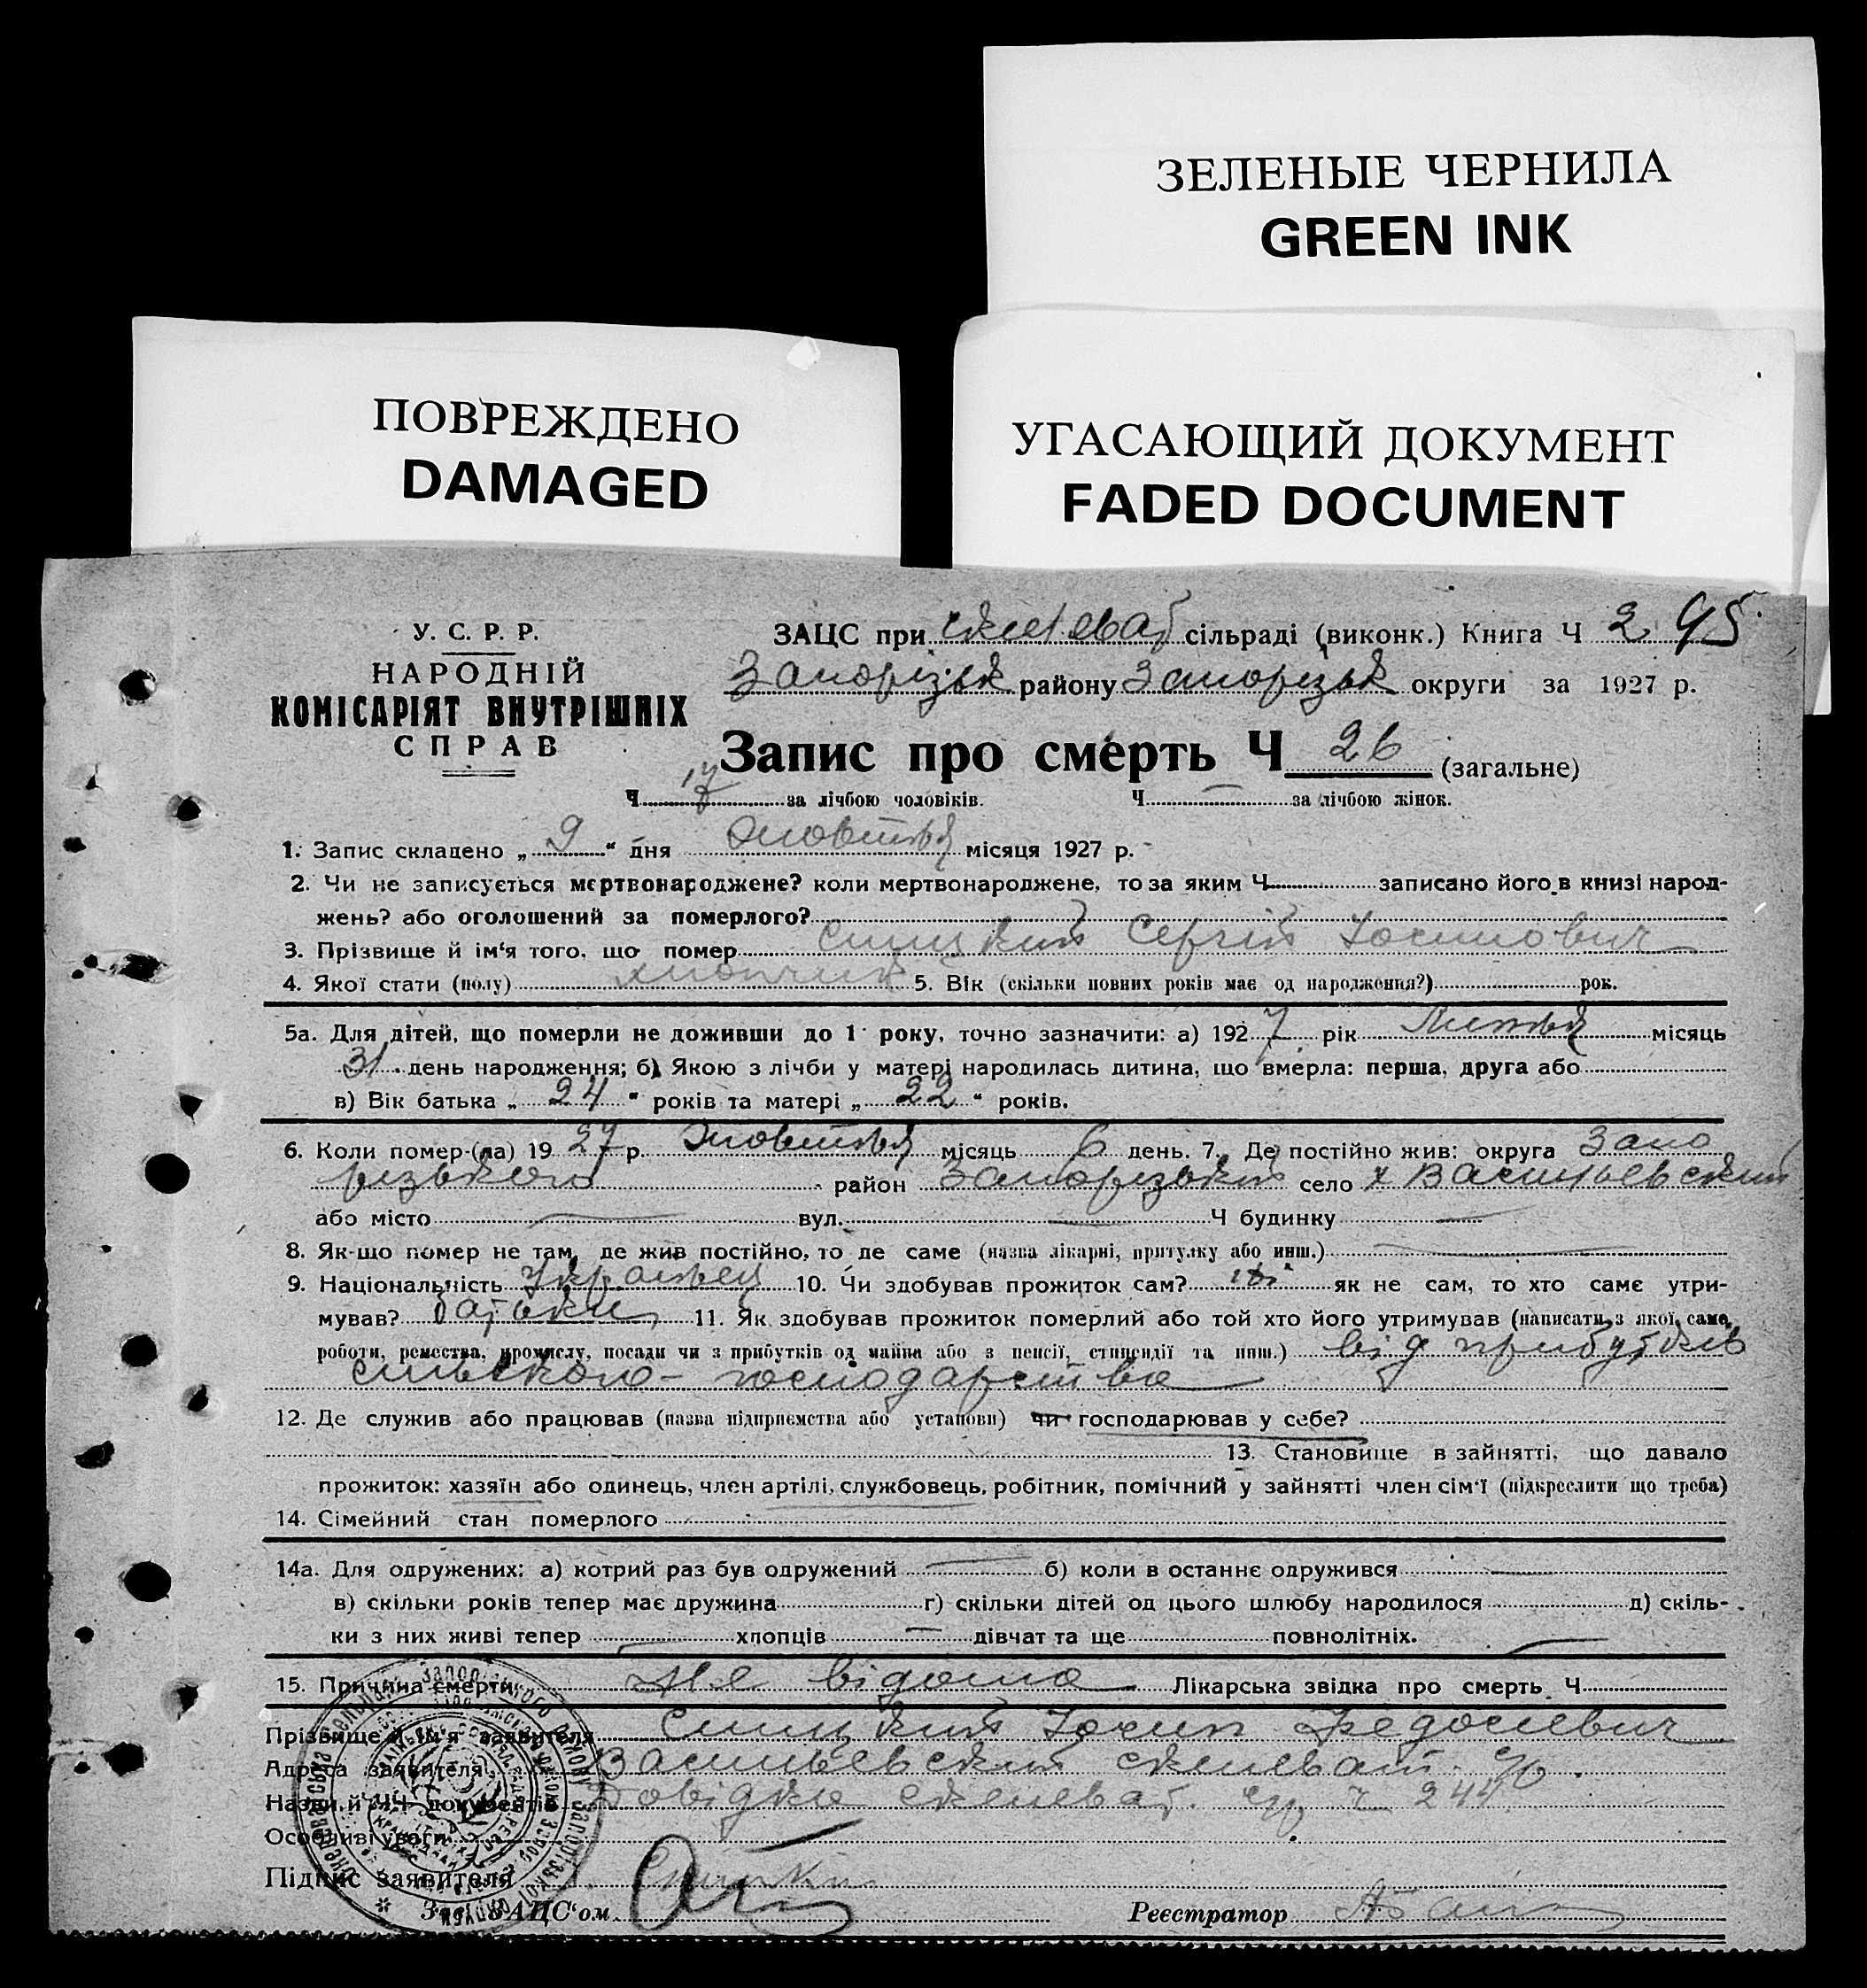 ЗЕЛЕНЫЕ ЧЕРНИЛА
GREEN INK
ПОВРЕЖДЕНО
DAMAGED
УГАСАЮЩИЙ ДОКУМЕНТ
FADED DOCUMENT
У. С. Р. Р.
НАРОДНІЙ
КОМІСАРІЯТ ВНУТРІШНІХ
СПРАВ
ЗАЦС при сільраді (виконк.) Книга Ч 2 95
Запорізьк району Запорізьк округи за 1927 р.
Запис про смерть Ч 26 (загальне)
Ч 17 за лічбою чоловіків. Ч — за лічбою жінок.
1. Запис складено „ 9 “ дня Жовтня місяця 1927 р.
2. Чи не записується мертвонароджене? коли мертвонароджене, то за яким Ч записано його в книзі народ-
жень? або оголошений за померлого?
3. Прізвище й ім'я того, що помер Сергій Йосипович
4. Якої стати (полу) хлопчик 5. Вік (скільки повних років має од народження?) рок.
5а. Для дітей, що померли не доживши до 1 року, точно зазначити: а) 1927 рік Липня місяць
31 день народження; б) Якою з лічби у матері народилась дитина, що вмерла: перша, друга або
в) Вік батька „ 24 “ років та матері „ 22 “ років.
6. Коли помер-(ла) 19 27 р. Жовтня місяць 6 день. 7. Де постійно жив: округа Запо
різького район Запорізький село х Васильевский
або місто — вул. — Ч будинку —
8. Як-що помер не там, де жив постійно, то де саме (назва лікарні, притулку або инш.) —
9. Національність Українец 10. Чи здобував прожиток сам? ні як не сам, то хто саме утри-
мував? батьки 11. Як здобував прожиток померлий або той хто його утримував (написати з якої саме
роботи, ремества, промислу, посади чи з прибутків од майна або з пенсії, стипендії та инш.) від прибутків
сільского-господарства
12. Де служив або працював (назва підприємства або установи) чи господарював у себе?
13. Становище в зайнятті, що давало
прожиток: хазяїн або одинець, член артілі, службовець, робітник, помічний у зайнятті член сім'ї (підкреслити що треба)
14. Сімейний стан померлого
14а. Для одружених: а) котрий раз був одружений — б) коли в останнє одружився —
в) скільки років тепер має дружина г) скільки дітей од цього шлюбу народилося д) скіль-
ки з них живі тепер — хлопців — дівчат та ще повнолітніх.
15. Причина смерти Не відома Лікарська звідка про смерть Ч
Прізвище й ім'я заявителя Йосип Федосіевич
Адреса заявителя Васильевский
Назви й ЧЧ документів Довідка Ч 244
Особливі уваги
Підпис заявителя
Зав. ЗАЦС'ом Реєстратор